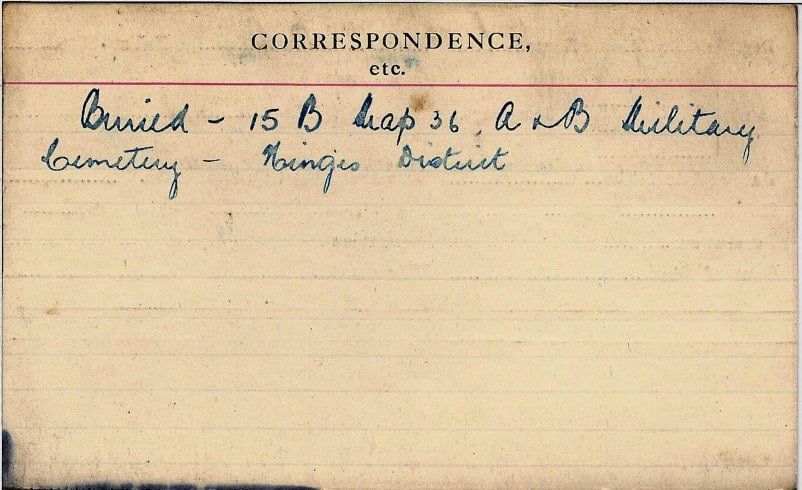 CORRESPONDENCE,
etc.
Buried - 15 B Map 36, A & B Military
Cemetery - Hinges District